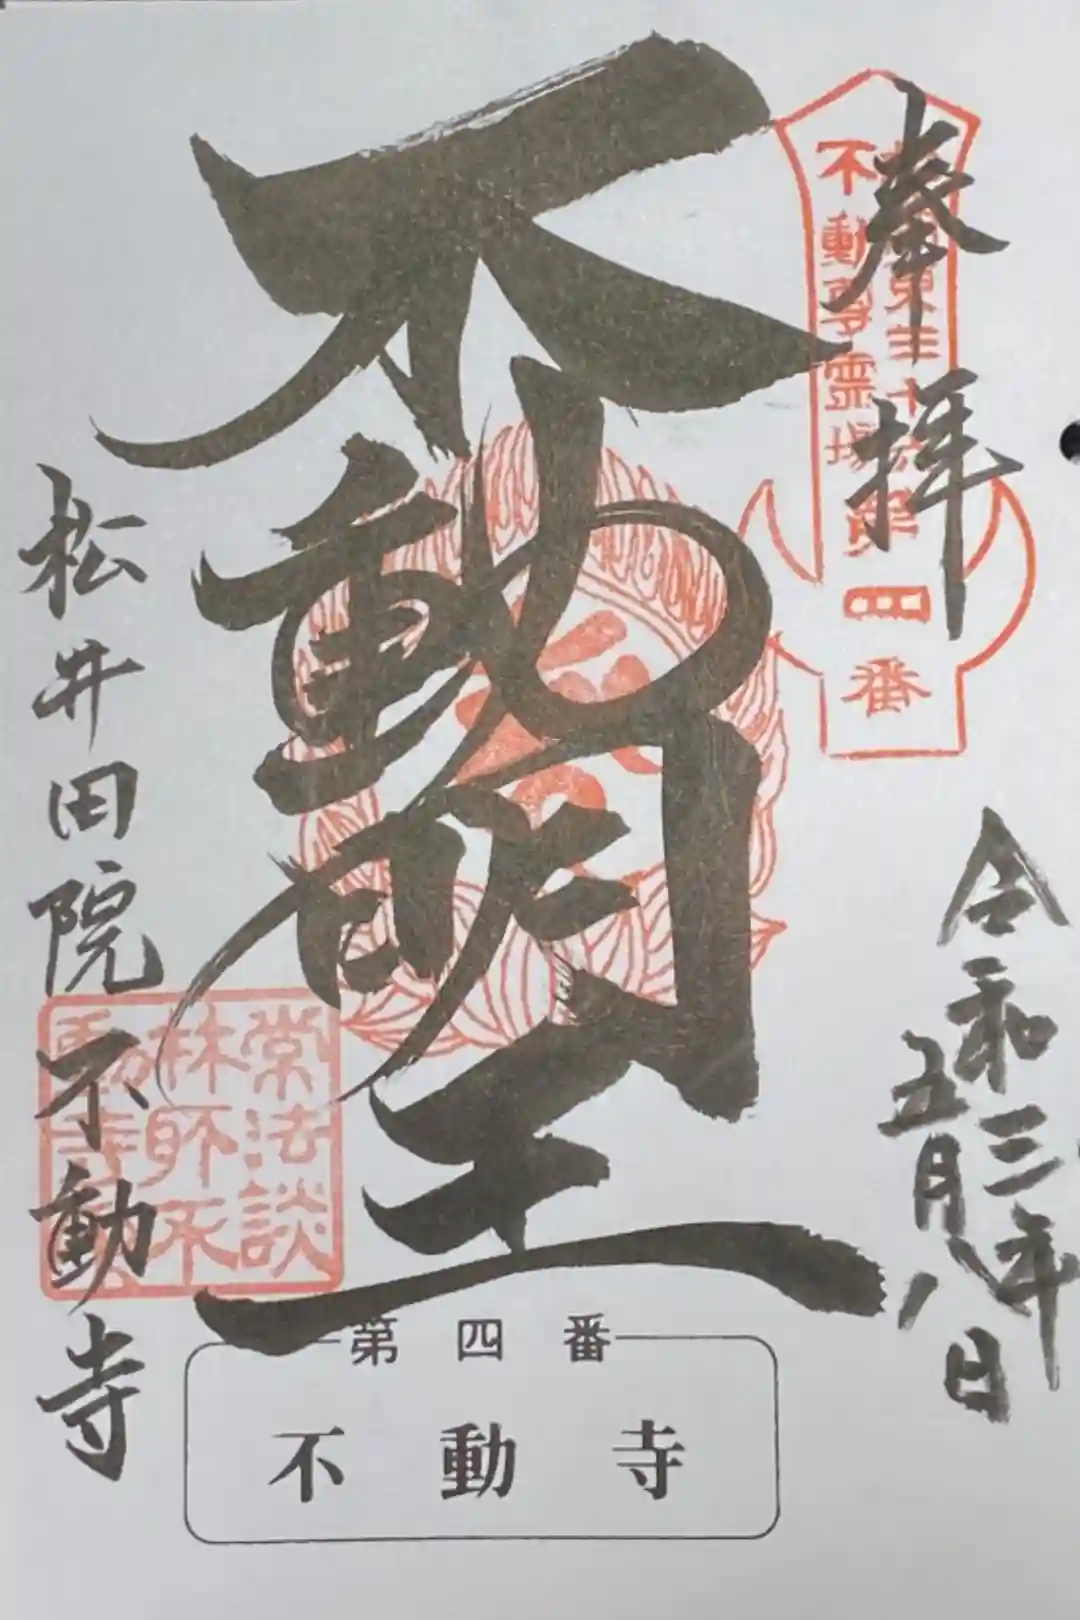 奉拝
不動尊霊場
第四番
令和三年
五月八日
不動明王
松井田院不動寺
常法談
林所不
動寺印
第四番
不動寺